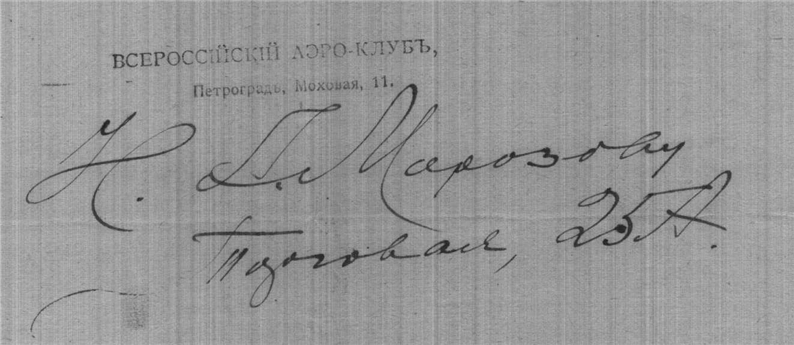 ВСЕРОССІЙСКІЙ АЭРО-КЛУБЪ,
Петроградъ, Моховая, 11.
Н. А. Морозову
Торговая, 25 А.